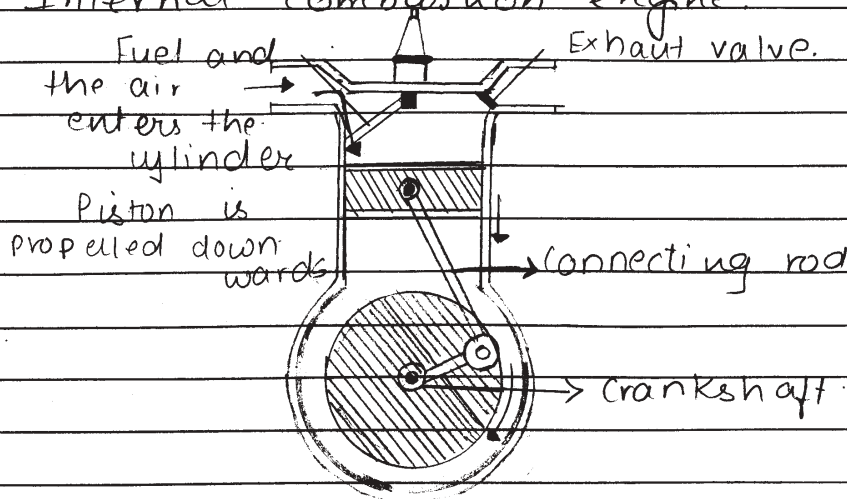 Internal combustion engine.
Fuel and
the air
enters the
cylinder
Exhaut valve.
Piston is
propelled down
wards
Connecting rod
Crankshaft